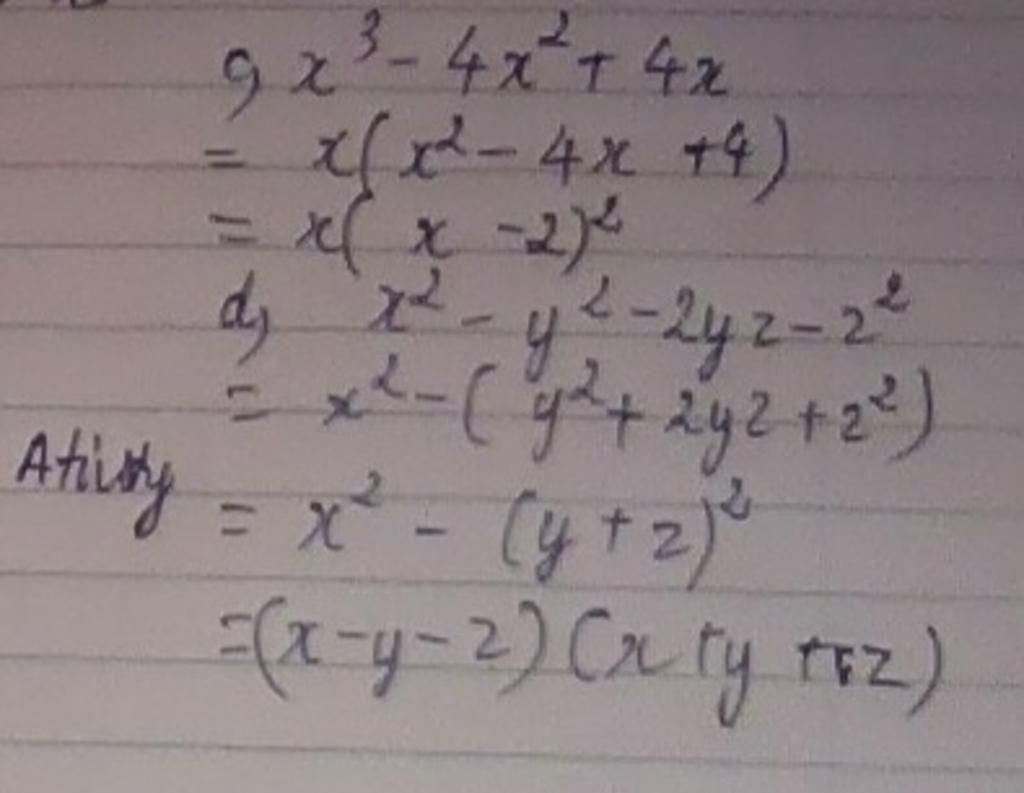 c, x³ - 4x² + 4x
= x(x² - 4x + 4)
= x(x - 2)²
d, x² - y² - 2yz - z²
= x² - (y² + 2yz + z²)
= x² - (y + z)²
=(x - y - z)(x + y + z)